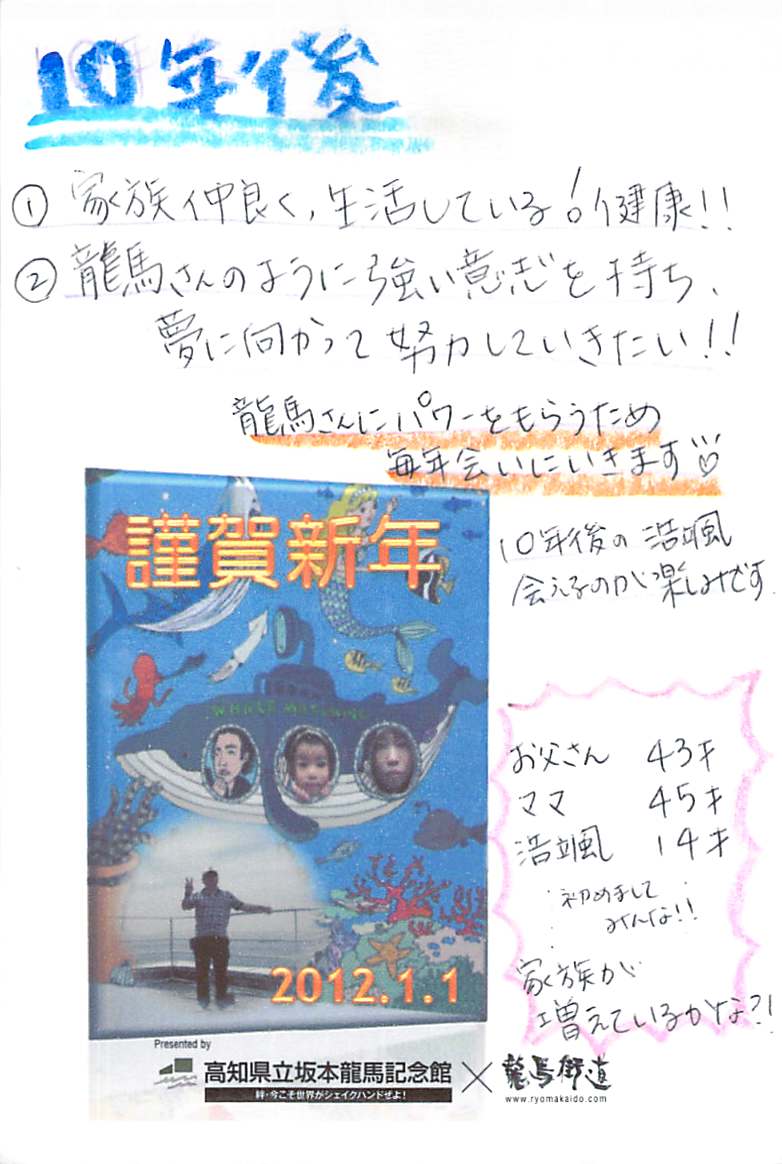 10年後
① 家族仲良く、生活している!健康!!
② 龍馬さんのように強い意志を持ち、
夢に向かって努力していきたい!!
龍馬さんにパワーをもらうため
毎年会いにいきます♡
10年後の浩颯
会えるのが楽しみです.
謹賀新年
WHALE WATCHING
2012.1.1
お父さん 43才
ママ 45才
浩颯 14才
初めまして
みんな!!
家族が
増えているかな?!
Presented by
高知県立坂本龍馬記念館×龍馬街道
絆・今こそ世界がシェイクハンドぜよ!
www.ryomakaido.com